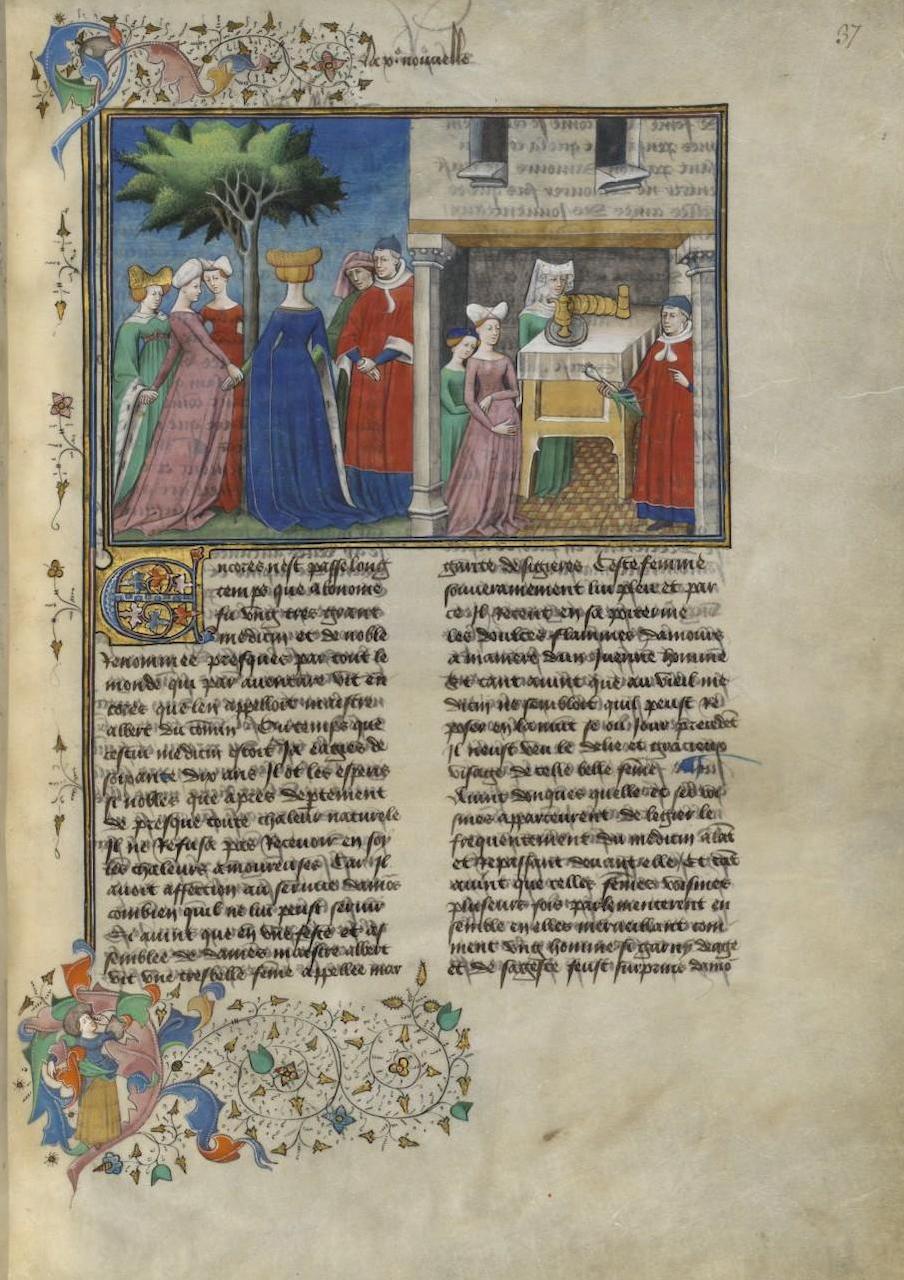 37
La x.e nouuelle
Encores nest passe long
temps que a bonome
fu vng tres grant
medicin et de noble
renommee presques par tout le
monde qui par auenture vit en
cores que len appelloit maistre
albert Ou temps que
cestui medicin estoit Ja eagies de
soixante dix ans Il ot les esperis
si nobles que apres deptement
de presque toute chaleur naturele
Il ne Refusa pas Recevoir en soy
les chaleurs amoureuses Car il
auoit affection au seruice damos
combien quil ne lui peust seruir
Si auint que en vne feste et as
semblee de dames maistre albert
vit vne tresbelle feme appellee mar
garite de sigieres Ceste femme
souuerainement lui pleu et par
ce Il Receut en sa poiterine
les doulces flammes damours
a maniere dun Jeune homme
Et tant auint que au vieil me
dicin ne sembloit quil peust Re
poser en la nuit se ou Jour precedet
Il neust veu le delie et gracieux
visage de celle belle feme
Auint donques quelle et ses voi
sines apparceurent de legier le
frequentement du medicin alat
et Repassant deuant elle Et tat
auint que celles femes voisines
plusieurs fois parlementerent en
semble en elles merueillant com
ment vng homme si garny deage
et de sagesse feust surprins damo